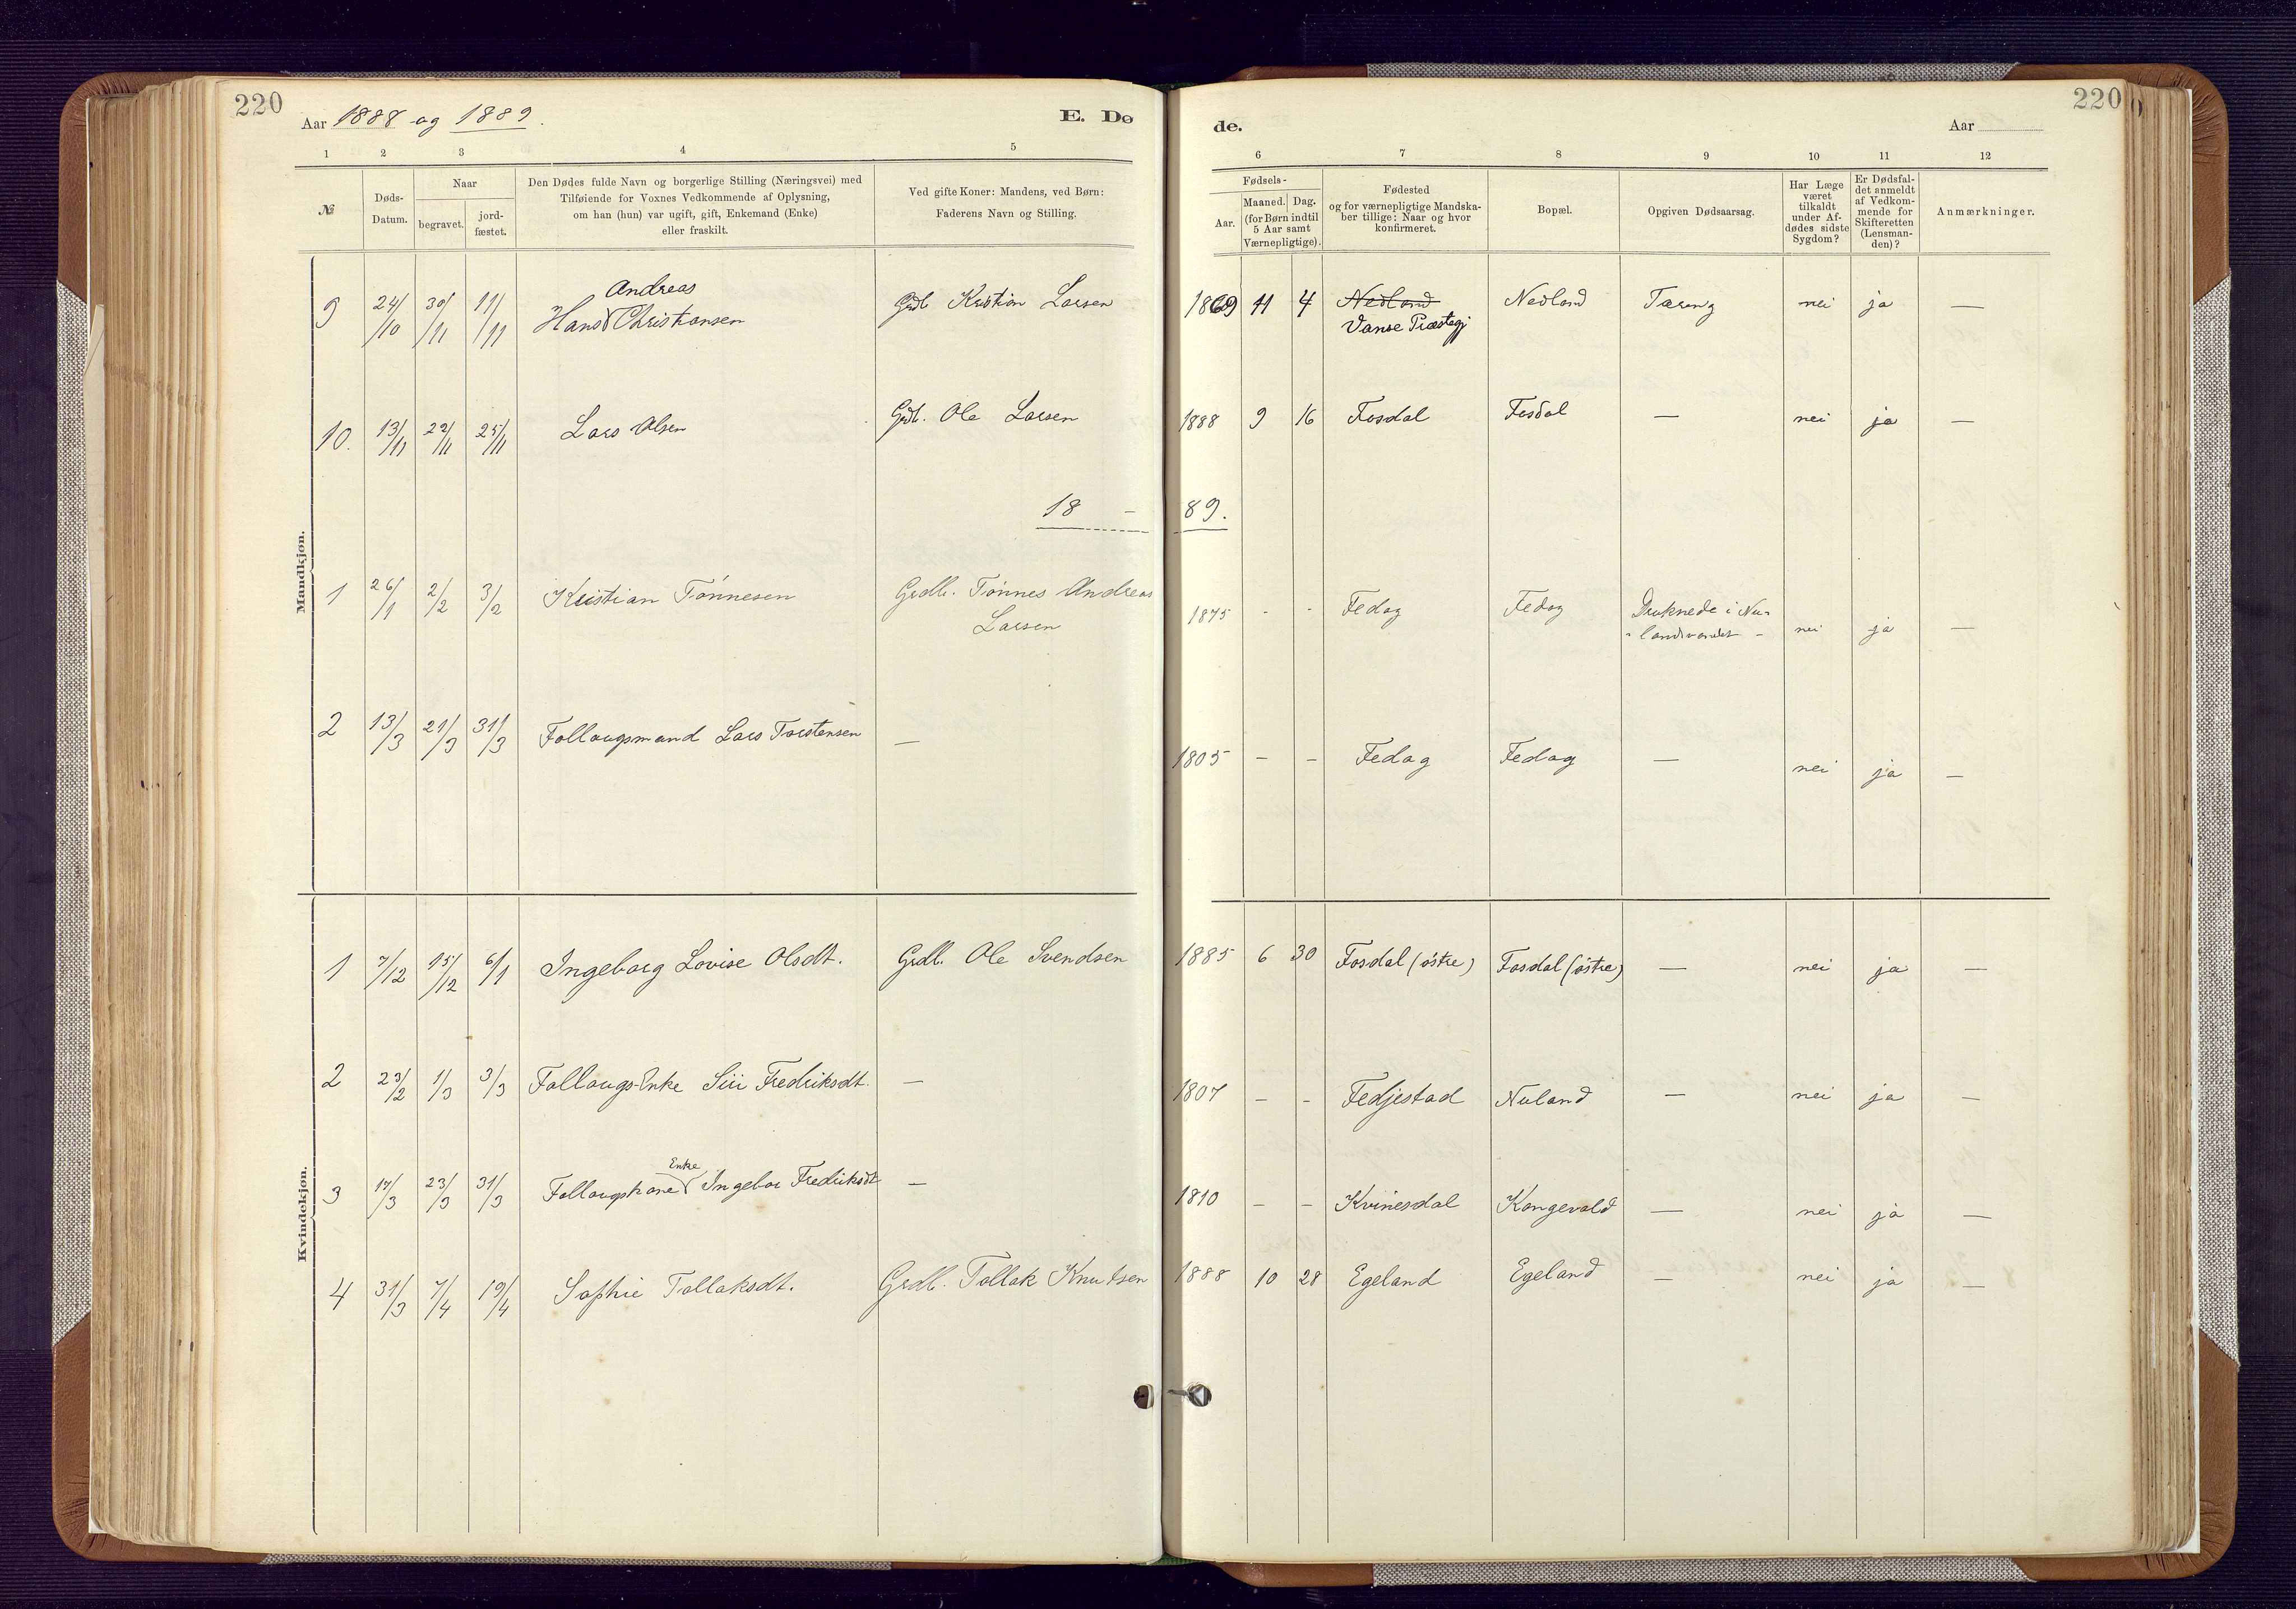 220
Aar 1888 og 1889.
E. Dø
de.
Aar
220
1 2 3 4 5
6 7 8 9 10 11 12
№
Døds-
Datum.
Naar
begravet.
jord-
fæstet.
Den Dødes fulde Navn og borgerlige Stilling (Næringsvei) med
Tilføiende for Voxnes Vedkommende af Oplysning,
om han (hun) var ugift, gift, Enkemand (Enke)
eller fraskilt.
Ved gifte Koner: Mandens, ved Børn:
Faderens Navn og Stilling.
Fødsels-
Aar.
Maaned.
Dag.
(for Børn indtil
5 Aar samt
Værnepligtige).
Fødested
og for værnepligtige Mandska-
ber tillige: Naar og hvor
konfirmeret.
Bopæl.
Opgiven Dødsaarsag.
Har Læge
været
tilkaldt
under Af-
dødes sidste
Sygdom?
Er Dødsfal-
det anmeldt
af Vedkom-
mende for
Skifteretten
(Lensman-
den)?
Anmærkninger.
Mandkjøn.
Andreas
9 24/10 30/11 11/11 Hans Christiansen Grdb. Kristian Larsen 1869 11 4 Nedland Nedland Tæring nei ja —
Vanse Præstegj
10. 13/11 22/11 25/11 Lars Olsen Grdb. Ole Larsen 1888 9 16 Fosdal Fosdal — nei ja —
18 - 89.
1 26/1 2/2 3/2 Kristian Tønnesen Grdb. Tønnes Andreas 1875 - - Fedog Fedog Druknede i Nu-
Larsen -landsvandet- nei ja —
2 13/3 21/3 31/3 Follaugsmand Lars Torstensen — 1805 — — Fedog Fedog — nei ja —
Kvindekjøn.
1 7/12 15/12 6/1 Ingeborg Lovise Olsdt. Grdb. Ole Svendsen 1885 6 30 Fosdal (østre) Fosdal (østre) — nei ja —
2 23/2 1/3 3/3 Follaugs-Enke Siri Fredriksdt. — 1807 — - Fedjestad Nuland — nei ja —
Enke
3 17/3 23/3 31/3 Follaugskone Ingebor Fredriksdt — 1810 — — Kvinesdal Kongevold — nei ja —
4 31/3 7/4 19/4 Sophie Tollaksdt. Grdb. Tollak Knudsen 1888 10 28 Egeland Egeland — nei ja —